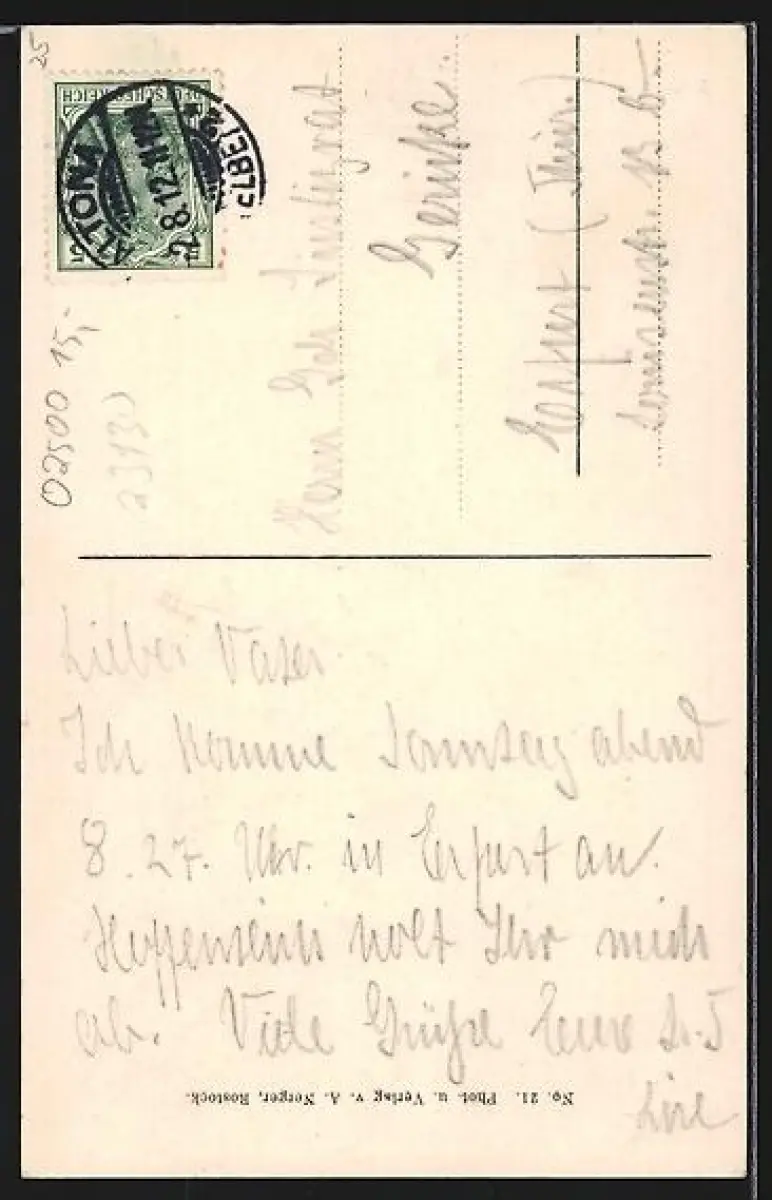 35
DEUTSCHES REICH
5 5
ALTONA
2.8.12. 11-12 N.
(ELBE)
02500 15,-
23130
Herrn Geh Justizrat
Gerinke.
Erfurt (Thür.)
13 b
Lieber Vater.
Ich komme Sonntag abend
8.27. Uhr. in Erfurt an.
Hoffentlich holt Ihr mich
ab. Viele Grüße Eure
No. 21. Phot. u. Verlag v. A. Nerger, Rostock.